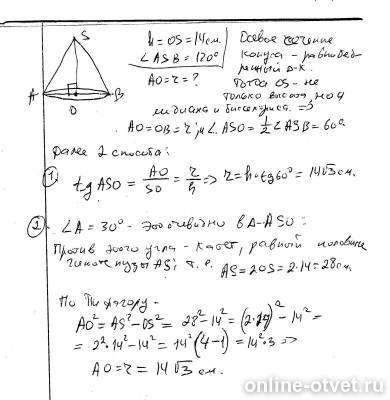 S
A
B
O
h = OS = 14 см.
∠ASB = 120°
AO = r = ?
Осевое сечение
конуса - равнобед-
ренный Δ-к.
Тогда OS - не
только высота, но и
медиана и биссектриса. ⇒
AO = OB = r и ∠ASO = ½ ∠ASB = 60°.
Далее 2 способа:
1. tg ASO = AO/SO = r/h ⇒ r = h·tg60° = 14√3 см.
2. ∠A = 30° - это очевидно в Δ-ASO:
Против этого угла - катет, равный половине
гипотенузы AS; т.е. AS = 2OS = 2·14 = 28 см.
По Пифагору -
AO² = AS² - OS² = 28² - 14² = (2·14)² - 14² =
= 2²·14² - 14² = 14²(4-1) = 14²·3 ⇒
AO = r = 14√3 см.
online-otvet.ru